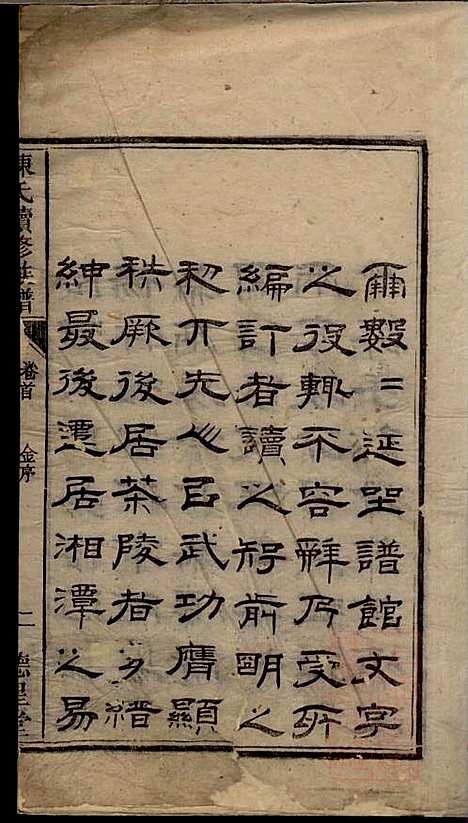 爾數二延至譜館文字
之役輒不容辭乃受所
編訂者讀之知前明之
初丌先世㠯武功膺顯
秩厥後居茶陵者多縉
紳最後遷居湘潭之易
陳氏續修族譜
卷首 金序
二
德星堂